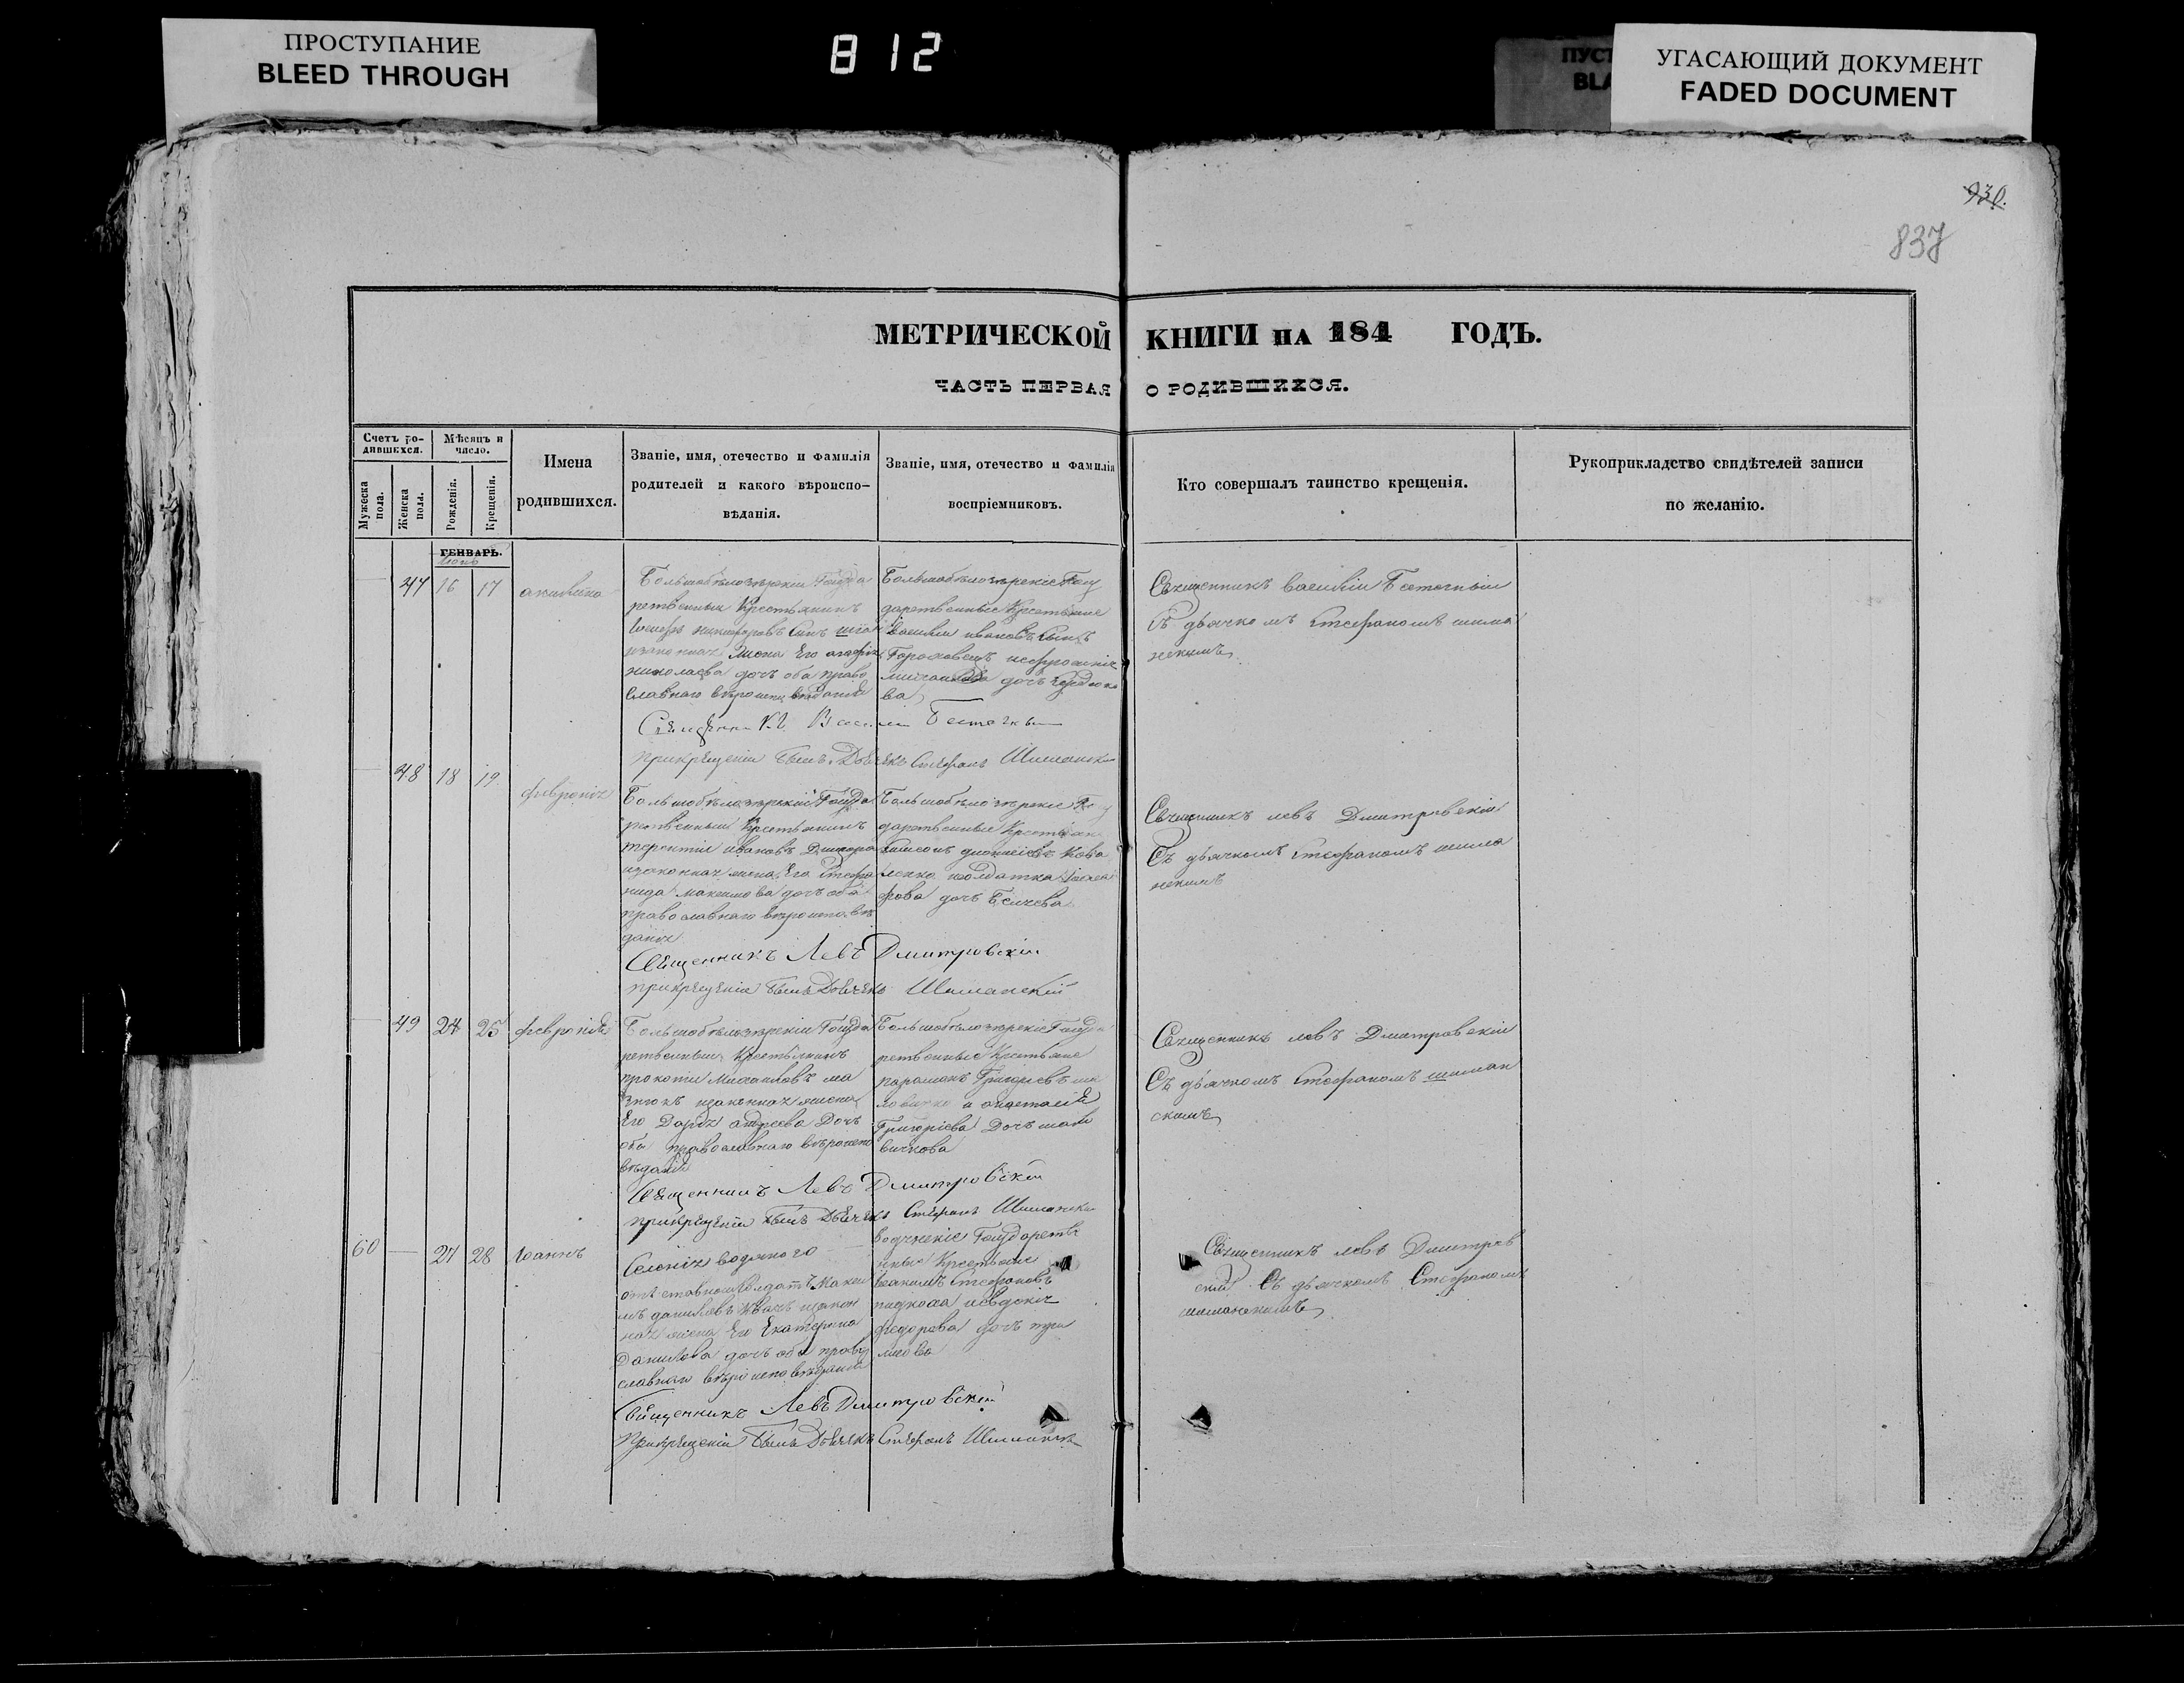 ПРОСТУПАНИЕ
BLEED THROUGH
812
ПУСТ
BLA
УГАСАЮЩИЙ ДОКУМЕНТ
FADED DOCUMENT
930.
837
МЕТРИЧЕСКОЙ КНИГИ НА 184 ГОДЪ.
ЧАСТЬ ПЕРВАЯ О РОДИВШИХСЯ.
Счетъ ро-
дившихся.
Мужеска
пола.
Женска
пола.
Мѣсяцъ и
число.
Рожденія.
Крещенія.
Имена
родившихся.
Званіе, имя, отечество и фамилія
родителей и какого вѣроиспо-
вѣданія.
Званіе, имя, отечество и фамилія
воспріемниковъ.
Кто совершалъ таинство крещенія.
Рукоприкладство свидѣтелей записи
по желанію.
ГЕНВАРЬ.
47 16 17 акилина
Большобѣлозѣрскій Госуда
рственный Крестьянинъ
никифоровъ Сынъ
изаконная Жена Его агафія
николаева дочъ оба право
славнаго
Большобѣлозѣрскіе Госу
дарственные Крестьяне
василій ивановъ Сынъ
Гороховецъ
дочъ
ва
Священникъ василій Бсточный
Съ дьячкомъ Стефаномъ шима
нскимъ
прикрещеніи былъ Дьячекъ Стефанъ Шиманскій
48 18 19 февронія
Большобѣлозѣрскій Госуда
рственный Крестьянинъ
терентій ивановъ
изаконная жена Его Стефа
нида максимова дочъ оба
православнаго вѣроисповѣ
данія
Большобѣлозѣрскіе Госу
дарственные Крестьяне
Кова
ленко исолдатка
фова дочъ
Священникъ левъ Дмитровскій
Съ дьячкомъ Стефаномъ шима
нскимъ
Священникъ Левъ Дмитровскій
прикрещеніи былъ Дьячекъ Шиманскій
49 24 25 февронія
Большобѣлозѣрскій Госуда
рственный Крестьянинъ
прокопій Михаиловъ ма
изаконная жена
Его Дарія андреева Дочъ
оба православнаго вѣроиспо
вѣданія
Большобѣлозѣрскіе Госуда
рственные Крестьяне
парамонъ Григорьевъ
и анастасія
Григоріева Дочъ
Священникъ левъ Дмитровскій
Съ дьячкомъ Стефаномъ шиман
скимъ
Священникъ Левъ Дмитровскій
прикрещеніи былъ Дьячекъ Стефанъ Шиманскій
60 27 28 Іоаннъ
Селенія водяного
отставной Солдатъ Макси
мъ даниловъ изакон
ная жена Его Екатерина
Данилова дочъ оба право
славнаго вѣроисповѣданія
водянскіе Государстве
нные Крестьяне
Стефановъ
иевдокія
федорова дочъ
Священникъ левъ Дмитров
скій Съ дьячкомъ Стефаномъ
шиманскимъ
Священникъ Левъ Дмитровскій
прикрещеніи былъ Дьячекъ Стефанъ Шиманскій